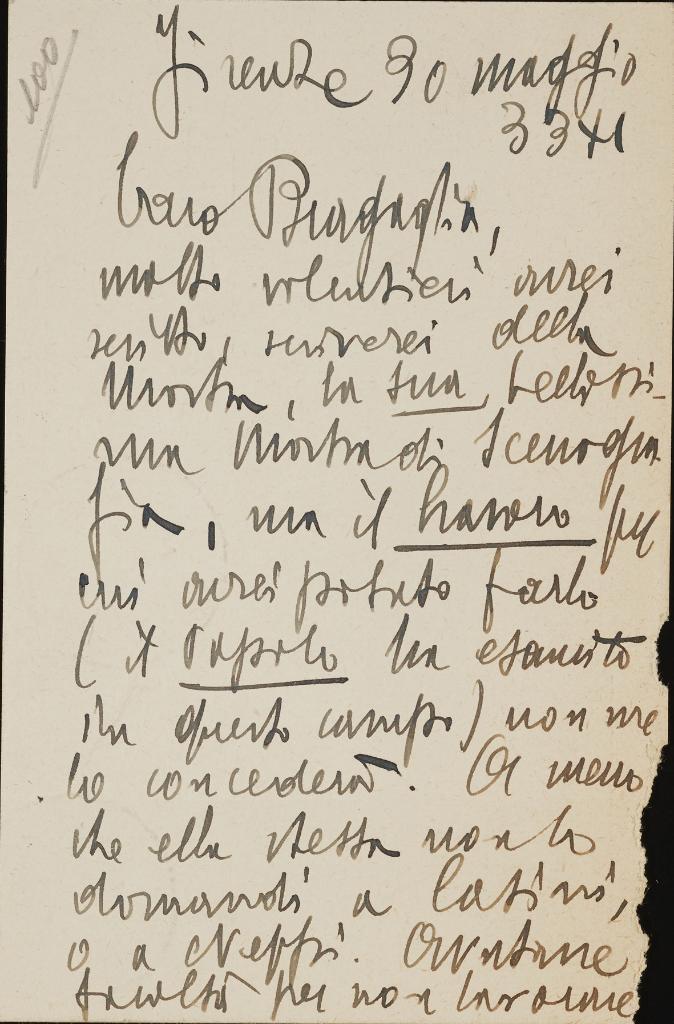 100
Firenze 30 maggio
33 XI
Caro Bragaglia,
molto volentieri avrei
scritto, scriverei della
Mostra, la sua, bellissi-
ma Mostra di Scenogra
fia, ma il lavoro per
cui avrei potuto farlo
(il Popolo ha esaurito
in questo campo) non me
lo concederà. A meno
che ella stessa non lo
domandi a Latini,
o a Neppi. Avutane
facoltà per non lavorare